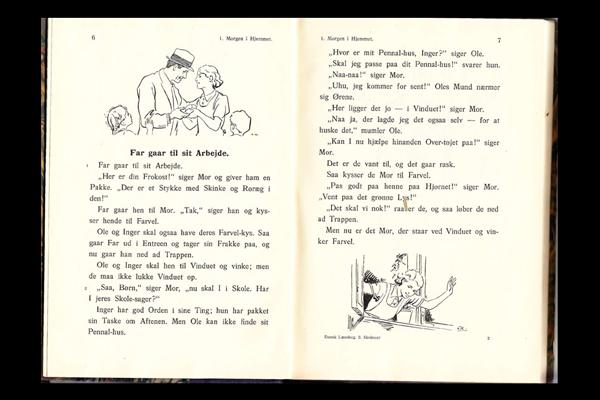 6
1. Morgen i Hjemmet.
Far gaar til sit Arbejde.
1 Far gaar til sit Arbejde.
„Her er din Frokost!“ siger Mor og giver ham en
Pakke. „Der er et Stykke med Skinke og Røræg i
den!“
Far gaar hen til Mor. „Tak,“ siger han og kys-
ser hende til Farvel.
Ole og Inger skal ogsaa have deres Farvel-kys. Saa
gaar Far ud i Entreen og tager sin Frakke paa, og
nu gaar han ned ad Trappen.
Ole og Inger skal hen til Vinduet og vinke; men
de maa ikke lukke Vinduet op.
2 „Saa, Børn,“ siger Mor, „nu skal I i Skole. Har
I jeres Skole-sager?“
Inger har god Orden i sine Ting; hun har pakket
sin Taske om Aftenen. Men Ole kan ikke finde sit
Pennal-hus.
1. Morgen i Hjemmet.
7
„Hvor er mit Pennal-hus, Inger?“ siger Ole.
„Skal jeg passe paa dit Pennal-hus!“ svarer hun.
„Naa-naa!“ siger Mor.
„Uhu, jeg kommer for sent!“ Oles Mund nærmer
sig Ørene.
„Her ligger det jo — i Vinduet!“ siger Mor.
„Naa ja, der lagde jeg det ogsaa selv — for at
huske det,“ mumler Ole.
„Kan I nu hjælpe hinanden Over-tøjet paa!“ siger
Mor.
Det er de vant til, og det gaar rask.
Saa kysser de Mor til Farvel.
„Pas godt paa henne paa Hjørnet!“ siger Mor.
„Vent paa det grønne Lys!“
„Det skal vi nok!“ raaber de, og saa løber de ned
ad Trappen.
Men nu er det Mor, der staar ved Vinduet og vin-
ker Farvel.
Dansk Læsebog. 2. Skoleaar
2